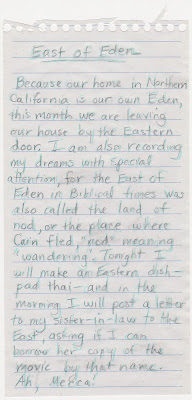 East of Eden
Because our home in Northern
California is our own Eden,
this month we are leaving
our house by the Eastern
door. I am also recording
my dreams with special
attention, for the East of
Eden in Biblical times was
also called the land of
nod, or the place where
Cain fled, "nod" meaning
"wandering." Tonight I
will make an Eastern dish-
pad thai- and in the
morning I will post a letter
to my sister-in-law to the
East, asking if I can
borrow her copy of the
movie by that name.
Ah,